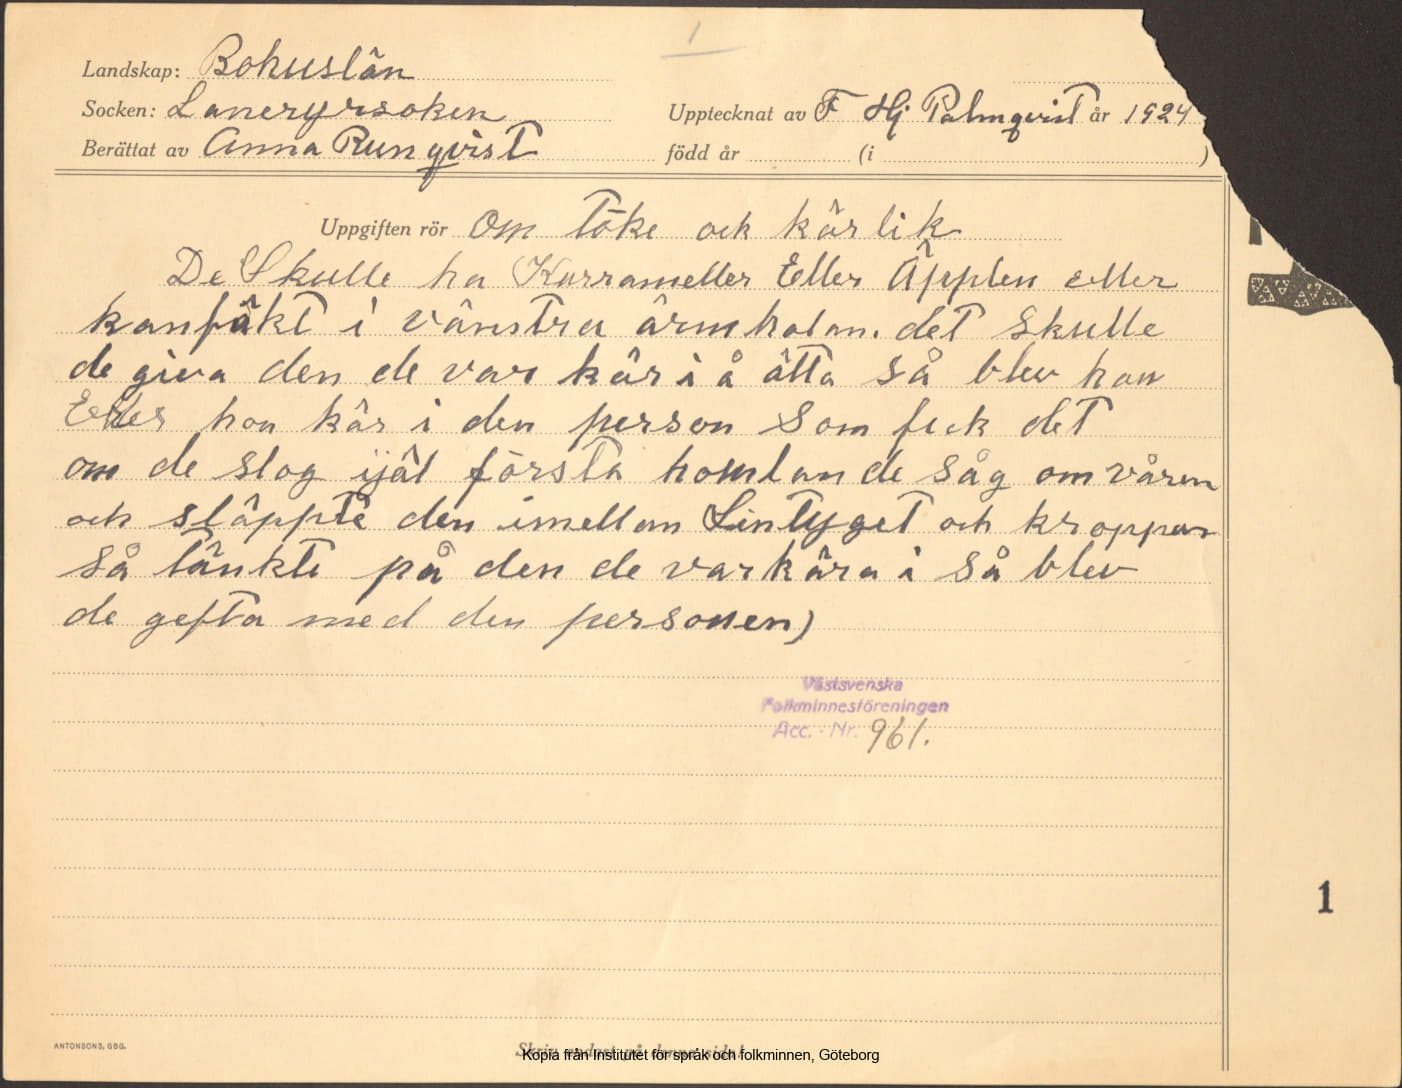 1
Landskap: Bohuslän
Socken: Laneryrsoken
Upptecknat av F Hj Palmqvist år 1924
Berättat av Anna Runqvist
född år (i )
Uppgiften rör Om töke och kärlik
De Skulle ha Karrameller Eller Äpplen eller
kanfäkt i vänstra ärmhalan. det skulle
de giva den de var kär i å ätta så blev han
Eller hon kär i den person som feck det
om de slog ijäl första homlan de såg om våren
och släppte den imellan Lintyget och kroppen
så tänkte på den de var kära i så blev
de gefta med den personen)
Västsvenska
Folkminnesföreningen
Acc. - Nr. 961.
1
ANTONSONS, GBG.
Skriv endast på denna sida!
Kopia från Institutet för språk och folkminnen, Göteborg